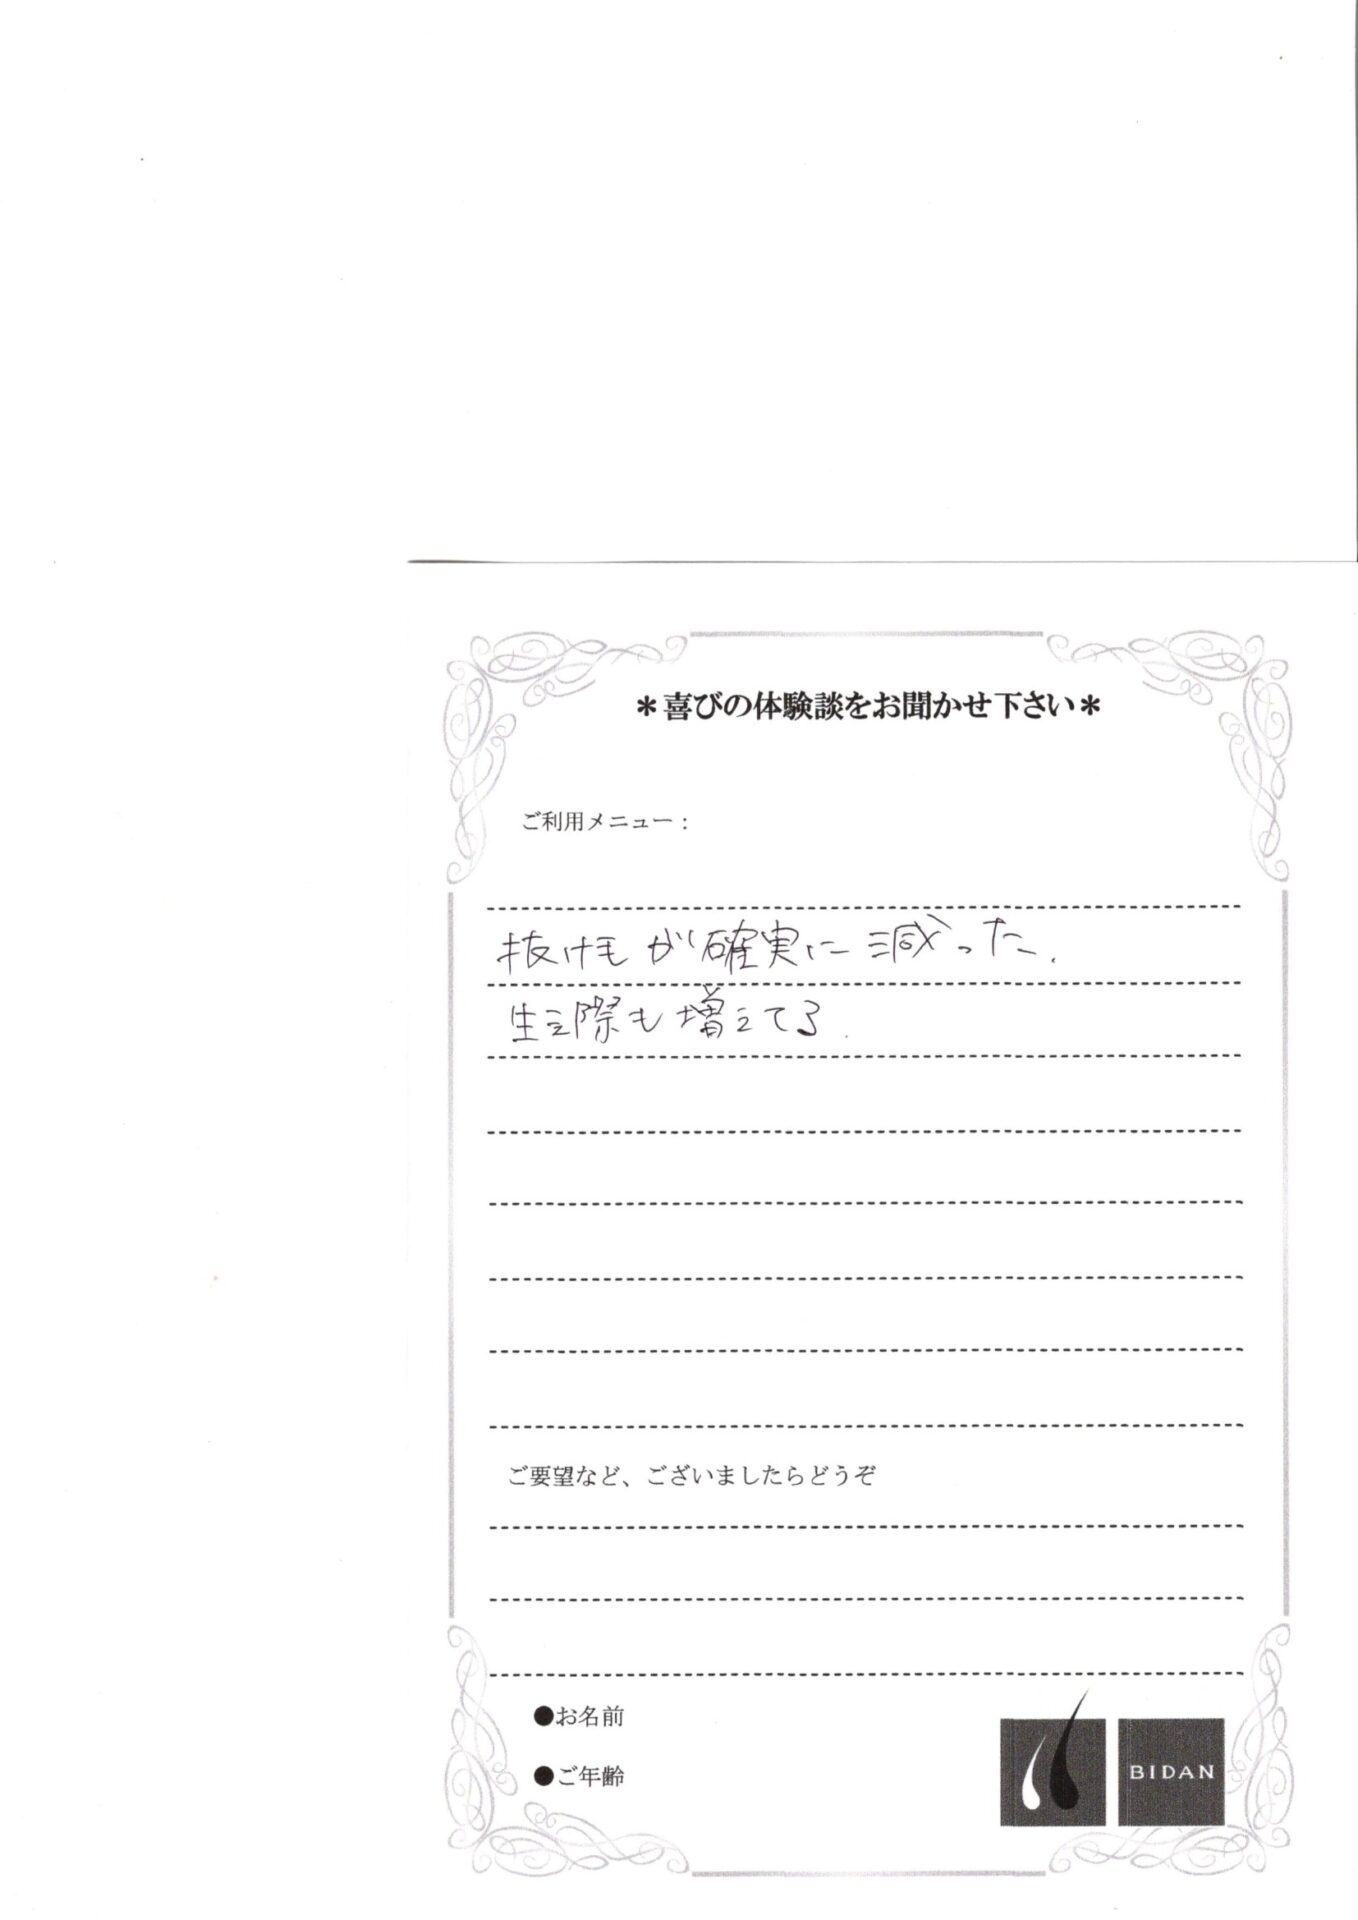 ＊喜びの体験談をお聞かせ下さい＊
ご利用メニュー：
抜け毛が確実に減った.
生え際も増えてる.
ご要望など、ございましたらどうぞ
●お名前
●ご年齢
BIDAN